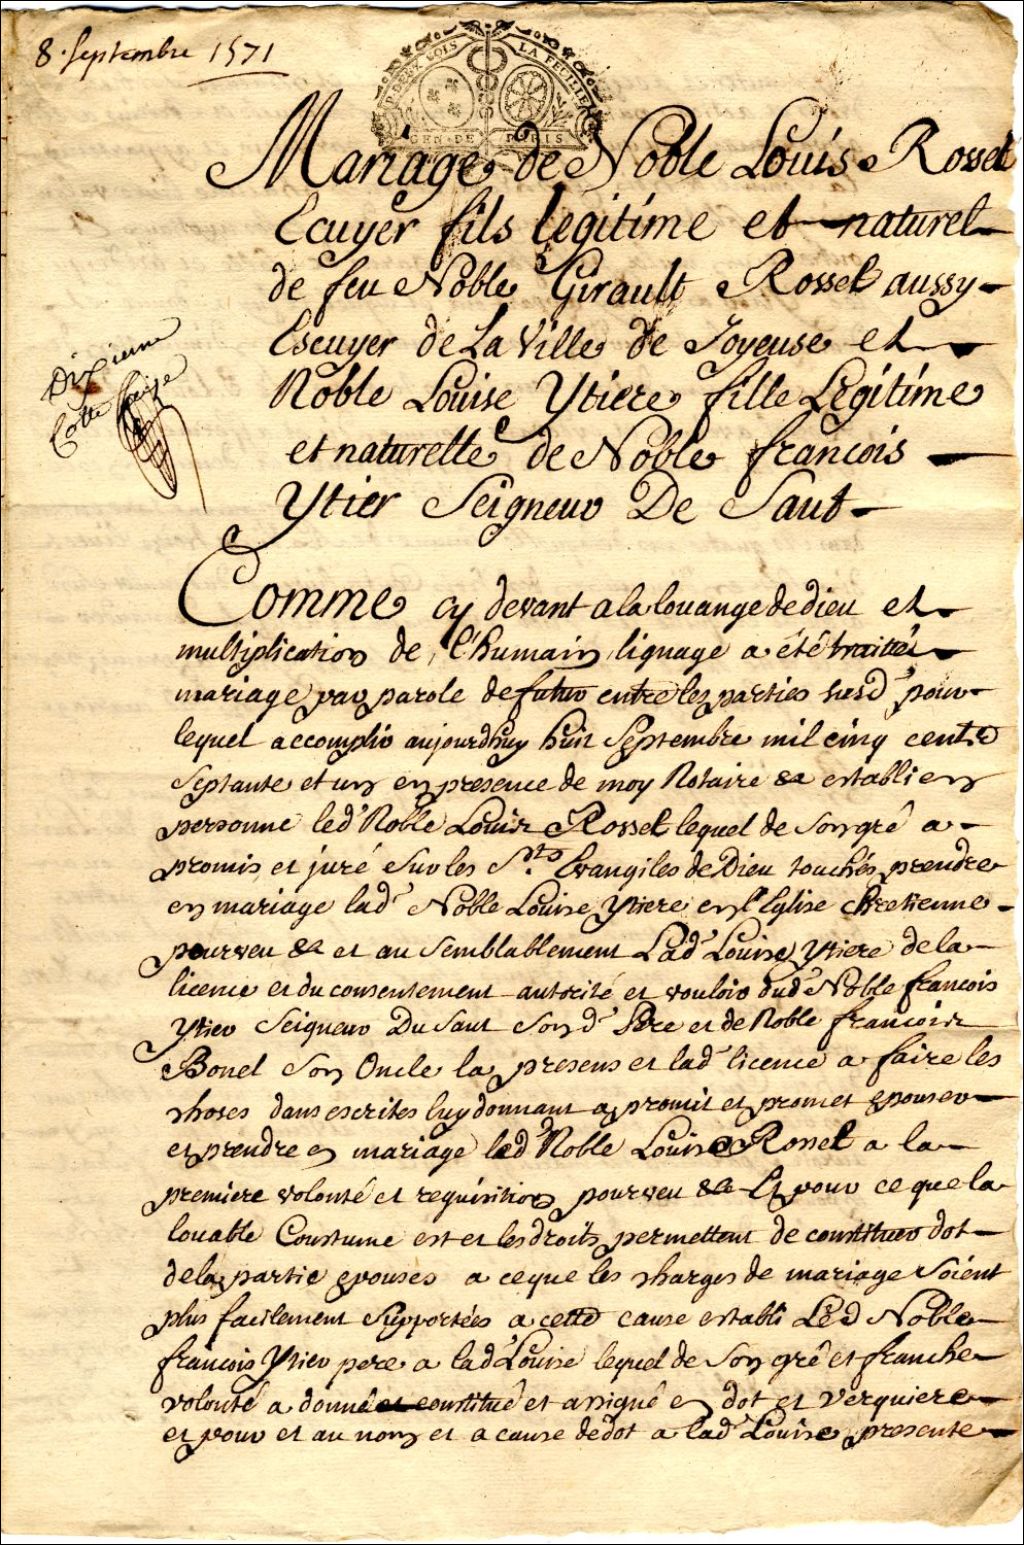 8. Septembre 1571
P. DEUX SOLS LA FEUILLE
GEN. DE PARIS
Mariage de Noble Louis Rossel
Ecuyer fils legitime et naturel
de feu Noble Girault Rossel aussy
Escuyer de La Ville de Joyeuse et
Noble Louise Ytiere fille Legitime
et naturelle de Noble francois
Ytier Seigneur De Saut
Dixieme
Cotte
Comme cy devant a la louange de dieu et
multiplication de l'humain lignage a été traitté
mariage par parole de futur entre les parties susd.es pour
lequel accomplir aujourdhuy huit Septembre mil cinq cents
Septante et un en presence de moy Notaire &a establi en
personne led.t Noble Louis Rossel lequel de Son gré a
promis et juré Sur les S.ts Evangiles de Dieu touchés prendre
en mariage lad.e Noble Louise Ytiere en l'Eglise chretienne
pourveu &a et au Semblablement Lad.e Louise Ytiere de la
licence et du consentement autorité et vouloir dud.t Noble francois
Ytier Seigneur Du Saut Sond.t Pere et de Noble francois
Bonel Son Oncle la presens et lad.e licence a faire les
choses dans escrites luy donnant a promit et promet epouser
et prendre en mariage led.t Noble Louis Rossel a la
premiere volonté et requisition pourveu &a Et pour ce que la
louable Coustume est et les droits permettent de constituer dot
de la partie epouses a ce que les charges de mariage Soient
plus facilement Supportées a cette cause establi Led Noble
francois Ytier pere a lad.e Louise lequel de Son gré et franche
volonté a donné et constitué et assigné en dot et Verquiere
et pour et au nom et a cause de dot a lad.e Louise presente